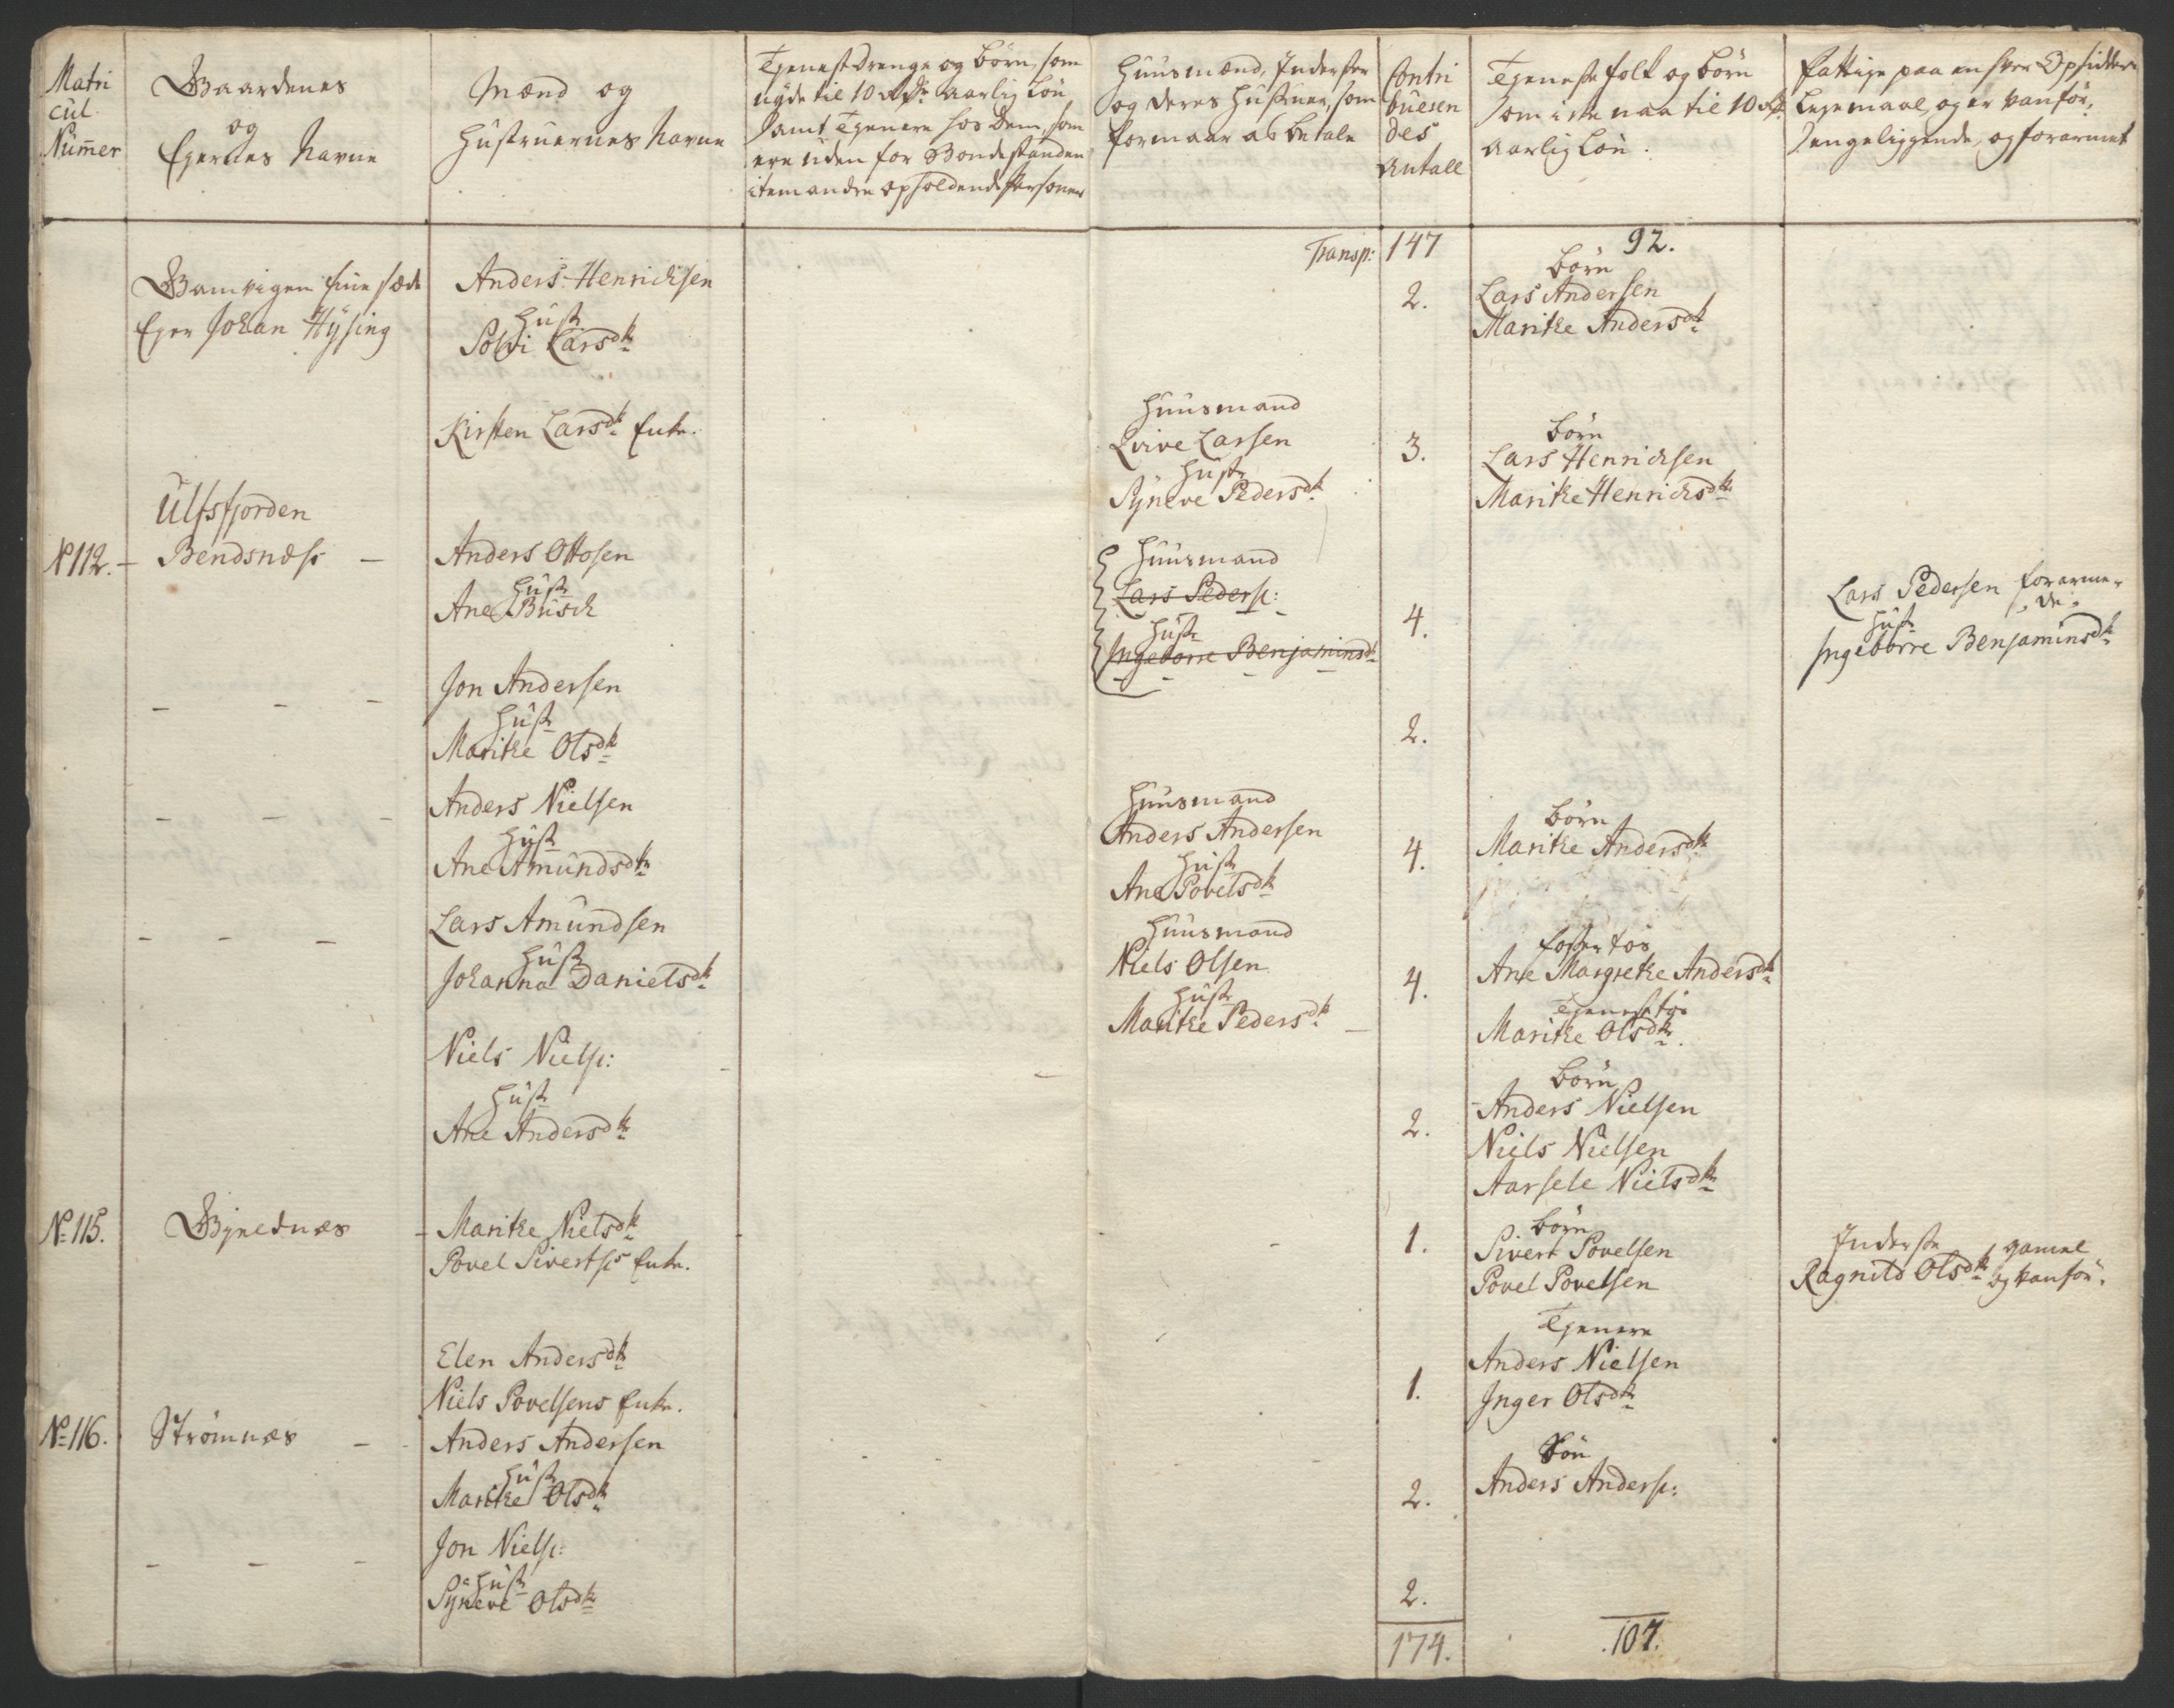 Matri
cul
Num̅er
Gaardenes
og
Ejernes Navne
Mænd og
Hustruernes Navne
Tjenest Drenge og Børn, som
nyde til 10 aarlig Løn
samt Tjenere hos dem, som
ere uden for Bondestanden
item andre opholdende Personer
Huusmænd, Inderster
og deres Hustruer, som
formaar at betale
Contri
bueren
des
Antall
Tjeneste folk og Børn
som icke naa til 10
aarlig Løn.
Fattige paa en hver Opsidders
Leyemaal, og er vanfør,
Sengeliggende, og forarmet
Transp: 147
92.
Eger Johan Hysing
Anders Henrichsen
Hust
Solvi Larsdtr
2.
Børn
Lars Andersen
Maritke Andersdtr
Kirsten Larsdtr Enke.
Huusmand
Lvive Larsen
Hust
Syneve Pedersdtr
3.
Børn
Lars Henrichsen
Maritke Henrichsdtr
Ulfsfjorden
No 112. - Bendsnæs -
Anders Ottosen
Hust
Ane Busch
Huusmand
Lars Peders:
Hust
Ingeborre Benjaminsdtr
4.
Lars Pedersen forarme-
de
Hust
Ingeborre Benjaminsdtr
- - -
Jon Andersen
Hust
Maritke Olsdtr
2.
- - -
Anders Nielsen
Hust
Ane Amundsdtr
Huusmand
Anders Andersen
Hust
Ane Povelsdtr
4.
Børn
Maritke Andersdtr
- - -
Lars Amundsen
Hust
Johanna Danielsdtr
Huusmand
Niels Olsen
Hust
Maritke Pedersdtr -
4.
Foster tøs
Ane Margretke Andersdtr
Tjeneste tøs
Maritke Olsdtr.
Niels Niels:
Hust
Ane Andersdtr
2.
Børn
Anders Nielsen
Niels Nielsen
Aarsele Nielsdtr
No 115.
Gjnednæs
- Maritke Nielsdtr
Povel Siverts Enke.
1.
Børn
Sivert Povelsen
Povel Povelsen
Inderste
Ragnild Olsdtr gamel
og vanfør.
Elen Andersdtr
Niels Povelsens Enke.
1.
Tjenere
Anders Nielsen
Inger Olsdtr
No 116.
Strømnæs -
Anders Andersen
Hust
Maritke Olsdtr
2.
Søn
Anders Anders:
- - -
Jon Niels:
Hust
Syneve Olsdtr
2.
174.
107.